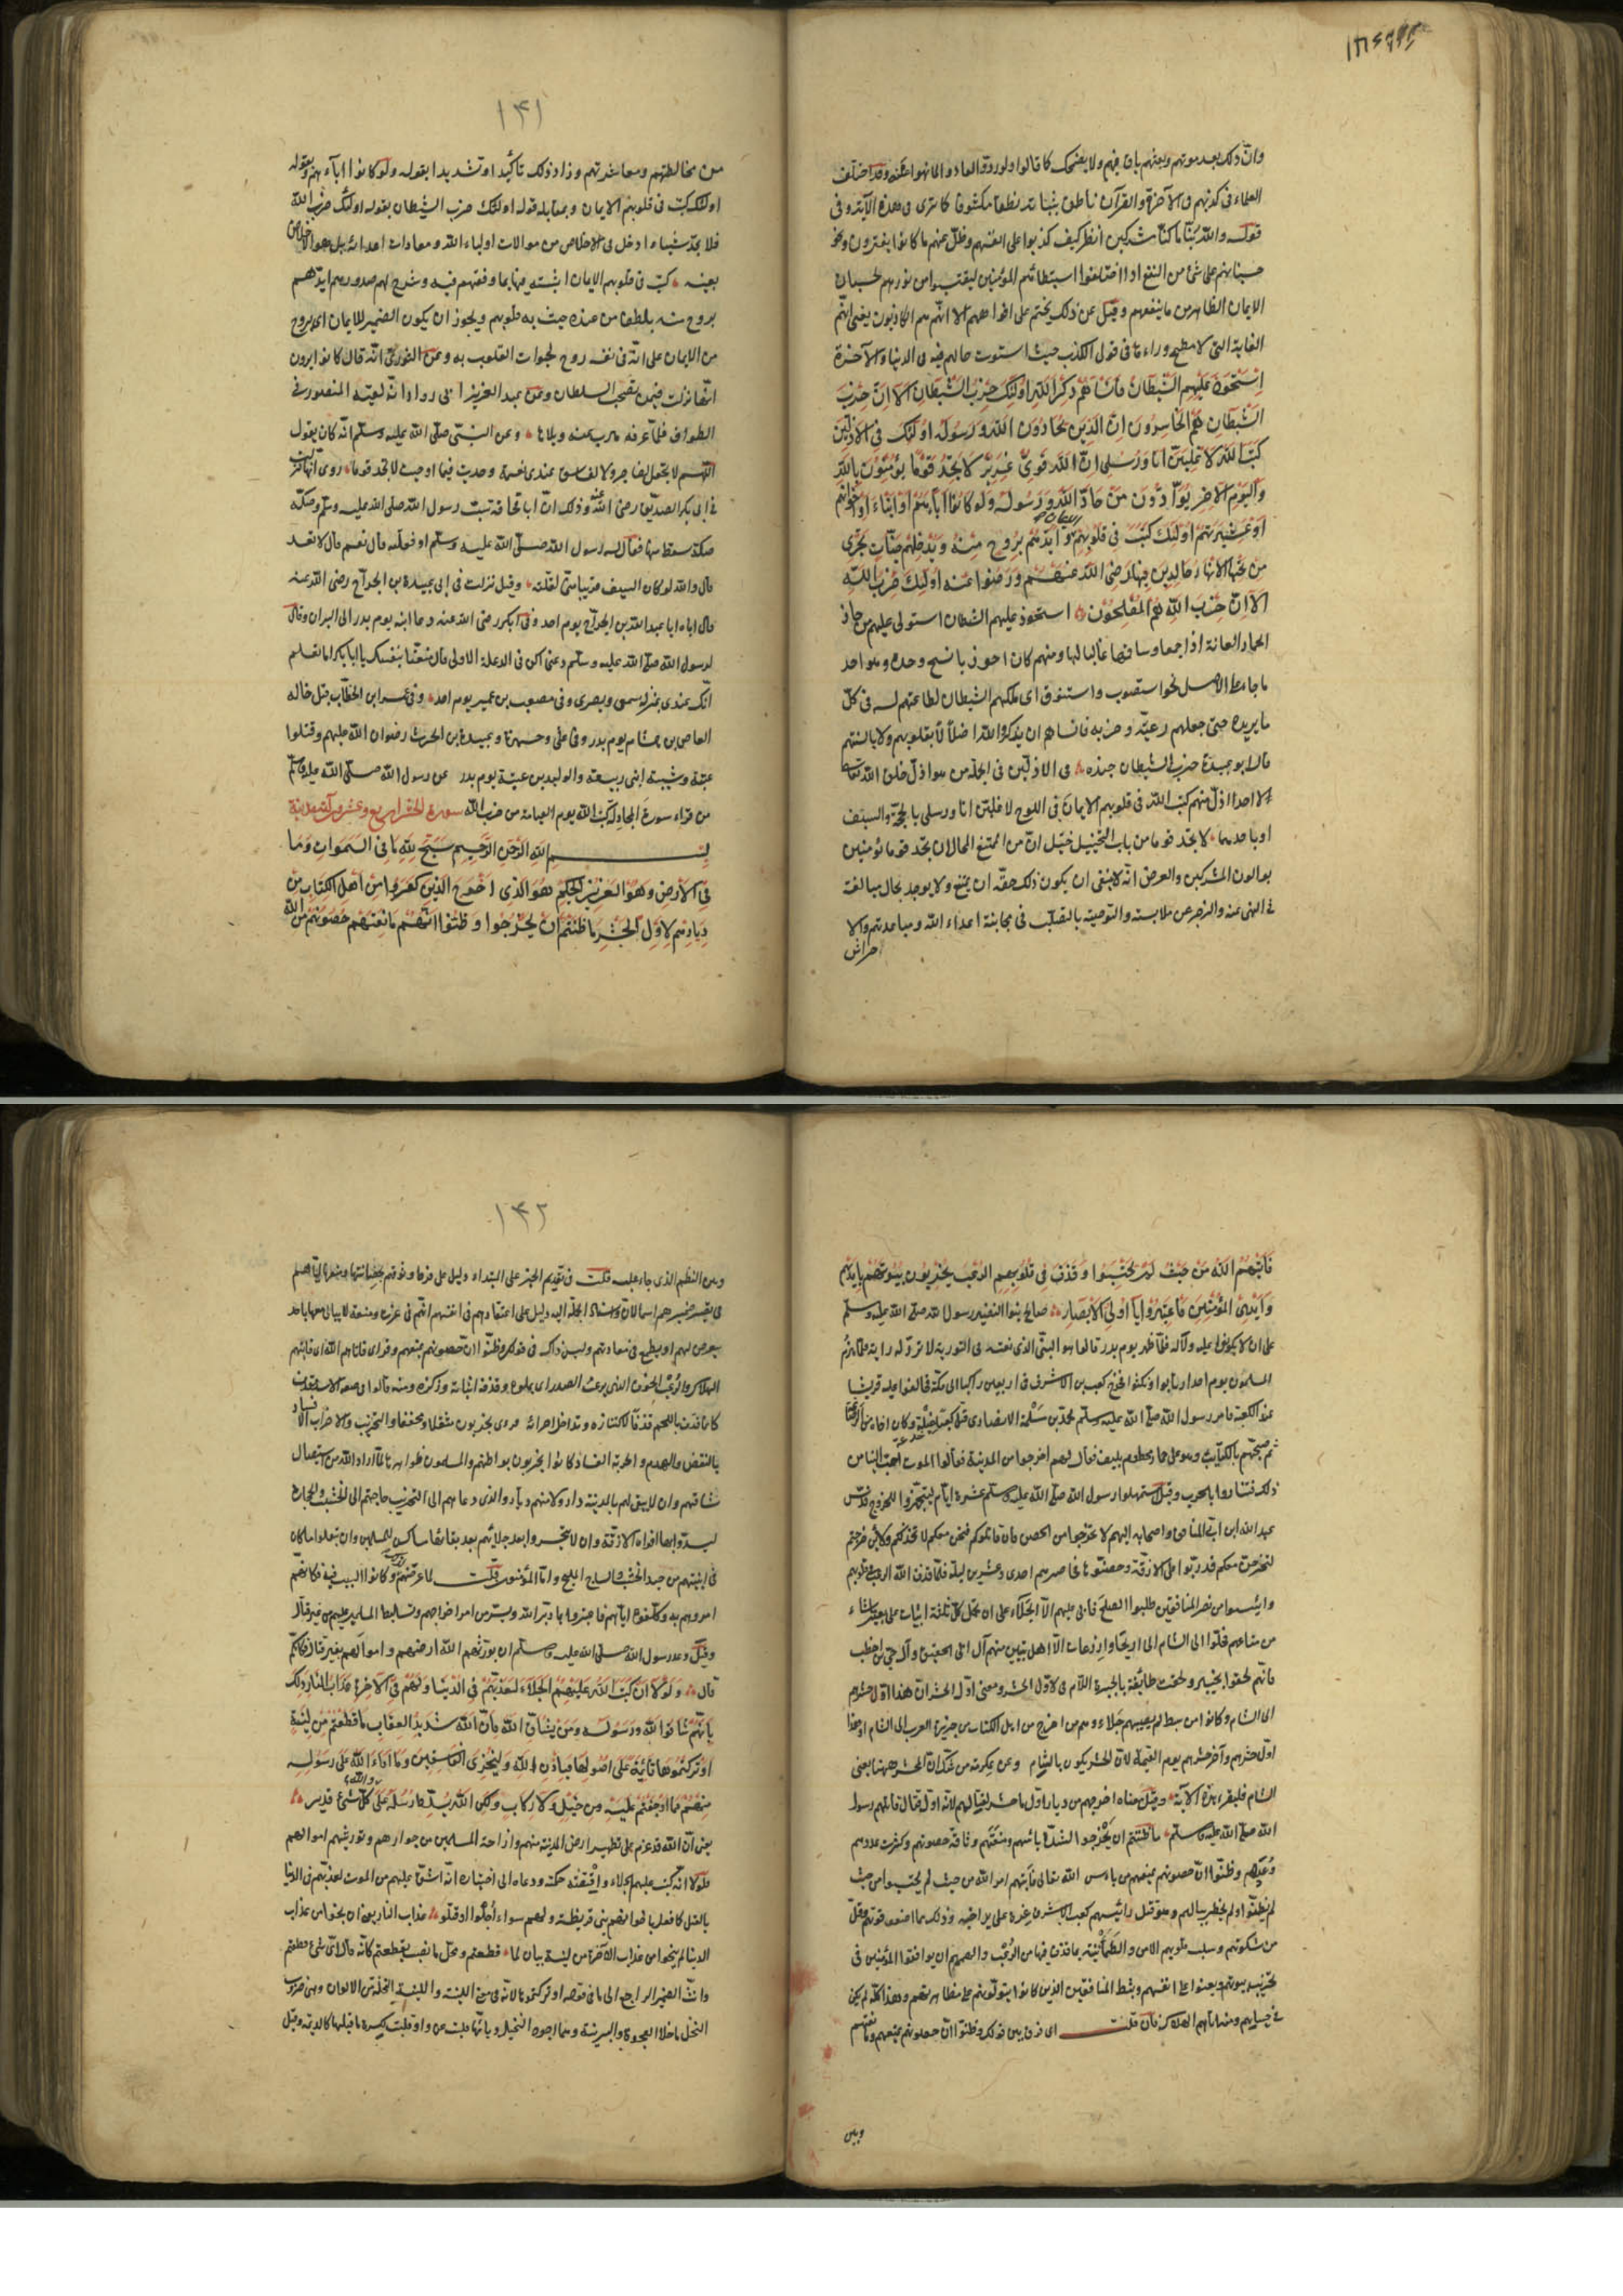 وانّ ذلك بعد موتهم وبعثهم باق فيهم ولا يضمحل كما قالوا ولو ردوا لعادوا لما نهوا عنه وقد اختلف
العلماء في كذبهم في الآخرة والقرآن ناطق بثباته نطقا مكشوفا كما ترى في هذه الآية وفي
قوله والله ربّنا ما كنّا مشركين انظر كيف كذبوا على انفسهم وضلّ عنهم ما كانوا يفترون ونحو
حسبانهم على شئ من النفع اذا اختلفوا استنظارهم المؤمنين ليقتبسوا من نورهم لحسبان
الايمان الظاهر من ما ينفعهم وقيل عن ذلك يختم على افواههم الا انّهم هم الكاذبون يعنى انّهم
الغاية التى لا مطمح وراءها في قول الكذب حيث استوت حالهم فيه في الدنيا والآخرة
اِسْتَحْوَذَ عَلَيْهِمُ الشَّيْطَانُ فَاَنْسَاهُمْ ذِكْرَ اللّهِ اُولٰئِكَ حِزْبُ الشَّيْطَانِ اَلَا اِنَّ حِزْبَ
الشَّيْطَانِ هُمُ الْخَاسِرُونَ اِنَّ الَّذِينَ يُحَادُّونَ اللّهَ وَرَسُولَهُ اُولٰئِكَ فِي الْاَذَلِّينَ
كَتَبَ اللّهُ لَاَغْلِبَنَّ اَنَا وَرُسُلِي اِنَّ اللّهَ قَوِيٌّ عَزِيزٌ لَا تَجِدُ قَوْمًا يُؤْمِنُونَ بِاللّهِ
وَالْيَوْمِ الْآخِرِ يُوَادُّونَ مَنْ حَادَّ اللّهَ وَرَسُولَهُ وَلَوْ كَانُوا اٰبَاءَهُمْ اَوْ اَبْنَاءَهُمْ اَوْ اِخْوَانَهُمْ
اَوْ عَشِيرَتَهُمْ اُولٰئِكَ كَتَبَ فِي قُلُوبِهِمُ الايمان وَاَيَّدَهُمْ بِرُوحٍ مِنْهُ وَيُدْخِلُهُمْ جَنَّاتٍ تَجْرِي
مِنْ تَحْتِهَا الْاَنْهَارُ خَالِدِينَ فِيهَا رَضِيَ اللّهُ عَنْهُمْ وَرَضُوا عَنْهُ اُولٰئِكَ حِزْبُ اللّهِ
اَلَا اِنَّ حِزْبَ اللّهِ هُمُ الْمُفْلِحُونَ استحوذ عليهم الشيطان استولى عليهم من حاذ
الحمار العانة اذا جمعها وساقها غالبا لها ومنهم كان احوذيا نسيج وحده وهو احد
ما جاء على الاصل نحو استصوب واستنوق اى ملكهم الشيطان لطاعتهم له في كلّ
ما يريده حتى جعلهم رعيّته وحزبه فانساهم ان يذكروا الله اصلا لا بقلوبهم ولا بالسنتهم
قال ابو عبيدة حزب الشيطان جنده في الاذلّين في اجلّ من هو اذلّ خلق الله تعالى
لا احدا اذلّ منهم كتب الله في قلوبهم الايمان في اللوح لاغلبنّ انا ورسلى بالحجّة والسيف
او باحدهما لا تجد قوما من باب التخييل خيّل انّ من الممتنع المحال ان تجد قوما مؤمنين
يوالون المشركين والغرض انّه لا ينبغى ان يكون ذلك حقّه ان يمتنع ولا يوجد بحال مبالغة
في النهى عنه والزجر عن ملابسته والتوصية بالتصلّب في مجانبة اعداء الله ومباعدتهم والا
حتراس
١٤١
من مخالطتهم ومعاشرتهم وزاد ذلك تأكيدا وتشديدا بقوله ولو كانوا اباءهم وبقوله
اولئك كتب في قلوبهم الايمان وبمقابلة قوله اولئك حزب الشيطان بقوله اولئك حزب الله
فلا تجد شيئا ادخل في الاخلاص من موالات اولياء الله ومعادات اعدائه بل هو الاخلاص
بعينه كتب في قلوبهم الايمان اثبته فيها بما وفّقهم فيه وشرح لهم صدورهم ايّدهم
بروح منه بلطف من عنده حييت به قلوبهم ويجوز ان يكون الضمير للايمان اى بروح
من الايمان على انّه في نفسه روح لحيوات القلوب به وعن الثورى انّه قال كانوا يرون
انّها نزلت فيمن يصحب السلطان وعن عبد العزيز ابن ابى رواد انّه لقيه المنصور في
الطواف فلمّا عرفه هرب منه وتلاها وعن النبىّ صلّى الله عليه وسلّم انّه كان يقول
اللّهم لا تجعل لفاجر ولا لفاسق عندى نعمة وجدت فيما اوحيت لا تجد قوما روى انّها نزلت
في ابى بكر الصديق رضى الله عنه وذلك انّ ابا قحافة سبّ رسول الله صلى الله عليه وسلّم وصكّه
صكّة سقط منها فقال له رسول الله صلّى الله عليه وسلّم او فعلته قال نعم قال لا تعد
قال والله لو كان السيف قريبا منّى لقتلته وقيل نزلت في ابى عبيدة ابن الجراح رضى الله عنه
قتل اباه ابا عبد الله بن الجراح يوم احد وفي ابى بكر رضى الله عنه دعا ابنه يوم بدر الى البراز وقال
لرسول الله صلّى الله عليه وسلّم دعنى اكن في الرعلة الاولى قال متّعنا بنفسك يا ابا بكر اما تعلم
انّك عندى بمنزلة سمعى وبصرى وفي مصعب بن عمير يوم احد وفي عمر ابن الخطّاب قتل خاله
العاص بن هشام يوم بدر وفي على وحمزة وعبيدة بن الحرث رضوان الله عليهم وقتلوا
عتبة وشيبة ابنى ربيعة والوليد بن عتبة يوم بدر عن رسول الله صلّى الله عليه وسلّم
من قراء سورة المجادلة كتب الله يوم القيامة من حزب الله سورة الحشر اربع وعشرون آية مدنية
بِسْمِ اللّهِ الرَّحْمٰنِ الرَّحِيمِ سَبَّحَ لِلّهِ مَا فِي السَّمٰوَاتِ وَمَا
فِي الْاَرْضِ وَهُوَ الْعَزِيزُ الْحَكِيمُ هُوَ الَّذِي اَخْرَجَ الَّذِينَ كَفَرُوا مِنْ اَهْلِ الْكِتَابِ مِنْ
دِيَارِهِمْ لِاَوَّلِ الْحَشْرِ مَا ظَنَنْتُمْ اَنْ يَخْرُجُوا وَظَنُّوا اَنَّهُمْ مَانِعَتُهُمْ حُصُونُهُمْ مِنَ اللّهِ
فَاَتٰيهُمُ اللّهُ مِنْ حَيْثُ لَمْ يَحْتَسِبُوا وَقَذَفَ فِي قُلُوبِهِمُ الرُّعْبَ يُخْرِبُونَ بُيُوتَهُمْ بِاَيْدِيهِمْ
وَاَيْدِي الْمُؤْمِنِينَ فَاعْتَبِرُوا يَا اُولِي الْاَبْصَارِ صالح بنوا النضير رسول الله صلّى الله عليه وسلّم
على ان لا يكونوا عليه ولا له فلمّا ظهر يوم بدر قالوا هو النبىّ الذى نعته في التورية لا تردّ له راية فلمّا هزم
المسلمون يوم احد ارتابوا ونكثوا فخرج كعب بن الاشرف في اربعين راكبا الى مكّة فحالفوا عليه قريشا
عند الكعبة فامر رسول الله صلّى الله عليه وسلّم محمّد بن مسلمة الانصارى فقتل كعبا غيلة وكان اخاه من الرضاعة
ثم صبّحهم بالكتائب وهو على حمار مخطوم بليف فقال لهم اخرجوا من المدينة فقالوا الموت احبّ الينا من
ذلك فتنادوا بالحرب وقيل استمهلوا رسول الله صلّى الله عليه وسلّم عشرة ايّام ليتجهّزوا للخروج فدسّ
عبد الله ابن ابىّ المنافق واصحابه اليهم لا تخرجوا من الحصن فان قاتلوكم فنحن معكم لا نخذلكم ولئن خرجتم
لنخرجنّ معكم فدرّبوا على الازقّة وحصّنوها فحاصرهم احدى وعشرين ليلة فلمّا قذف الله الرعب في قلوبهم
وايئسوا من نصر المنافقين طلبوا الصلح فابى عليهم الّا الجلاء على ان يحمل كلّ ثلثة ابيات على بعير ما شاء
من متاعهم فجلوا الى الشام الى اريحا واذرعات الّا اهل بيتين منهم آل ابى الحقيق وآل حيى بن اخطب
فانّهم لحقوا بخيبر ولحقت طائفة بالحيرة اللّام في لاوّل الحشر ومعنى اوّل الحشر انّ هذا اوّل حشرهم
الى الشام وكانوا من سبط لم يصبهم جلاء وهم من اخرج من اهل الكتاب من جزيرة العرب الى الشام او هذا
اوّل حشرهم وآخر حشرهم يوم القيمة لانّ الحشر يكون بالشام وعن عكرمة من شكّ انّ الحشر ههنا يعنى
الشام فليقرء هذه الآية وقيل معناه اخرجهم من ديارهم لاوّل ما حشر لقتالهم لانه اوّل قتال قاتلهم رسول
الله صلّى الله عليه وسلّم ما ظننتم ان يخرجوا لشدّة بائسهم ومنعتهم وثاقة حصونهم وكثرة عددهم
وعدّتهم وظنّوا انّ حصونهم تمنعهم من باءس الله تعالى فاتيهم امر الله من حيث لم يحتسبوا من حيث
لم يظنّوا ولم يخطر ببالهم وهو قتل رائيسهم كعب الاشرف غرّة على يد اخيه وذلك ممّا اضعف قوتهم وفلّ
من شوكتهم وسلب قلوبهم الامن والطمأنينة بما قذف فيها من الرّعب والهمهم ان يوافقوا المؤمنين في
تخريب بيوتهم ويعينوا على انفسهم وثبط المنافقين الذين كانوا يتولّونهم عن مظاهرتهم وهذا كلّه لم يكن
في حسابهم ومنه اتاهم الهلاك فان قلت اى فرق بين قولك وظنّوا انّ حصونهم تمنعهم ومانعتهم
وبين
١٤٢
وبين النظم الذى جاء عليه قلت في تقديم الخبر على المبتداء دليل على فرط وثوقهم بحصانتها ومنعها اياهم
في تصيير ضميرهم اسما لانّ واسناد الجملة اليه دليل على اعتقادهم في انفسهم انّهم في عزّة ومنعة لا يبالى معها باحد
يتعرض لهم او يطمع في معادتهم وليس ذاك في قولك وظنّوا انّ حصونهم تمنعهم وقرائ فاتاهم الله اى فاتيهم
الهلاك والرّعب الخوف الذى يرعب الصدر اى يملؤه وقذفه اثباته وركزه ومنه قالوا في صفة الاسد مقذف
كانّما قذف باللحم قذفا لاكتنازه وتداخل اجزائه وقرئ يخربون مشقلا ومخففا والتخريب والاخراب الافساد
بالنقض والهدم والخربة الفساد كانوا يخربون بواطنهم والمسلمون ظواهرها لما اراد الله من استيصال
شافتهم وان لا يبقى لهم بالمدينة دار ولا منهم ديّار والذى دعاهم الى التخريب حاجتهم الى الخشب والحجارة
ليسدّوا بها افواه الازقّة وان لا يتحسروا بعد جلائهم بعد بقائها مساكن للمسلمين وان ينقلوا ما كان
في ابنيتهم من جيد الخشب والساج المليح وامّا المؤمنون قلت لما عرضوهم وكانوا السبب فيه فكانّهم
امروهم به وكلّفوه ايّاهم فاعتبروا بما دبّر الله ويسر من امر اخراجهم وتسليط المسلمين عليهم من غير قتال
وقيل وعد رسول الله صلى الله عليه وسلّم ان يورثهم الله ارضهم واموالهم بغير قتال فكان كما
قال وَلَوْلَا اَنْ كَتَبَ اللّهُ عَلَيْهِمُ الْجَلَاءَ لَعَذَّبَهُمْ فِي الدُّنْيَا وَلَهُمْ فِي الْآخِرَةِ عَذَابُ النَّارِ ذٰلِكَ
بِاَنَّهُمْ شَاقُّوا اللّهَ وَرَسُولَهُ وَمَنْ يُشَاقِّ اللّهَ فَاِنَّ اللّهَ شَدِيدُ الْعِقَابِ مَا قَطَعْتُمْ مِنْ لِينَةٍ
اَوْ تَرَكْتُمُوهَا قَائِمَةً عَلٰى اُصُولِهَا فَبِاِذْنِ اللّهِ وَلِيُخْزِيَ الْفَاسِقِينَ وَمَا اَفَاءَ اللّهُ عَلٰى رَسُولِهِ
مِنْهُمْ فَمَا اَوْجَفْتُمْ عَلَيْهِ مِنْ خَيْلٍ وَلَا رِكَابٍ وَلٰكِنَّ اللّهَ يُسَلِّطُ رُسُلَهُ عَلٰى من يشاء والله على كُلِّ شَيْءٍ قَدِيرٌ
يعنى انّ الله قد عزم على تطهير ارض المدينة منهم وازاحة المسلمين من جوارهم وتوريثهم اموالهم
فلولا انّه كتب عليهم الجلاء واقتضته حكمته ودعاه الى اختياره انّه اشقّ عليهم من الموت لعذّبهم في الدنيا
بالقتل كما فعل باخوانهم بنى قريظة ولهم سواء اجلوا او قتلوا عذاب النار يعنى ان نجوا من عذاب
الدنيا لم ينجوا من عذاب الآخرة من لينة بيان لما قطعتم ومحلّ ما نصب بقطعتم كانّه قال اىّ شئ قطعتم
وانّث الضمير الراجع الى ما في قوله او تركتموها لانّه في معنى اللينة واللينة النخلة من الالوان وهى ضروب
النخل ما خلا العجوة والبرنيّة وهما اجود النخيل وياؤها قلبت عن واو قلبت لكسرة ما قبلها كالديمة وقيل